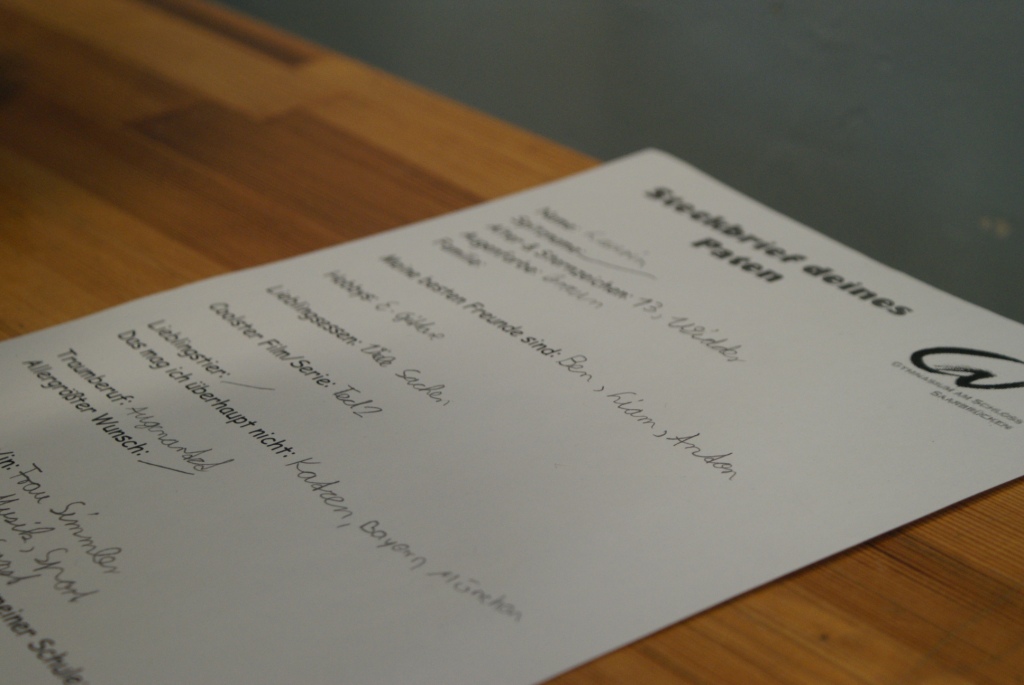 Steckbrief deines
Paten
GYMNASIUM AM SCHLOSS
SAARBRÜCKEN
Name:
Spitzname:
Alter & Sternzeichen: 13, Widder
Augenfarbe: braun
Familie:
Meine besten Freunde sind: Ben, Liam, Anton
Hobbys: E-Gitarre
Lieblingsessen: Viele Sachen
Coolster Film/Serie: Ted 2
Lieblingstier:
Das mag ich überhaupt nicht: Katzen, Bayern München
Traumberuf: Augenarzt
Allergrößter Wunsch:
in: Frau Simmler
Musik, Sport
meiner Schule